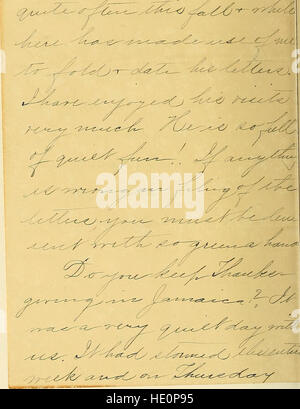 quite often this fall & while
here has made use of me
to fold & date his letters.
I have enjoyed his visits
very much. He is so full
of quiet fun! If anything
is wrong in filing of the
letters you must be len
ient with so green a hand
Do you keep Thanks-
giving in Jamaica? It
was a very quiet day with
us. It had stormed the entire
week and on Thursday
alamy stock photo
HE0P95